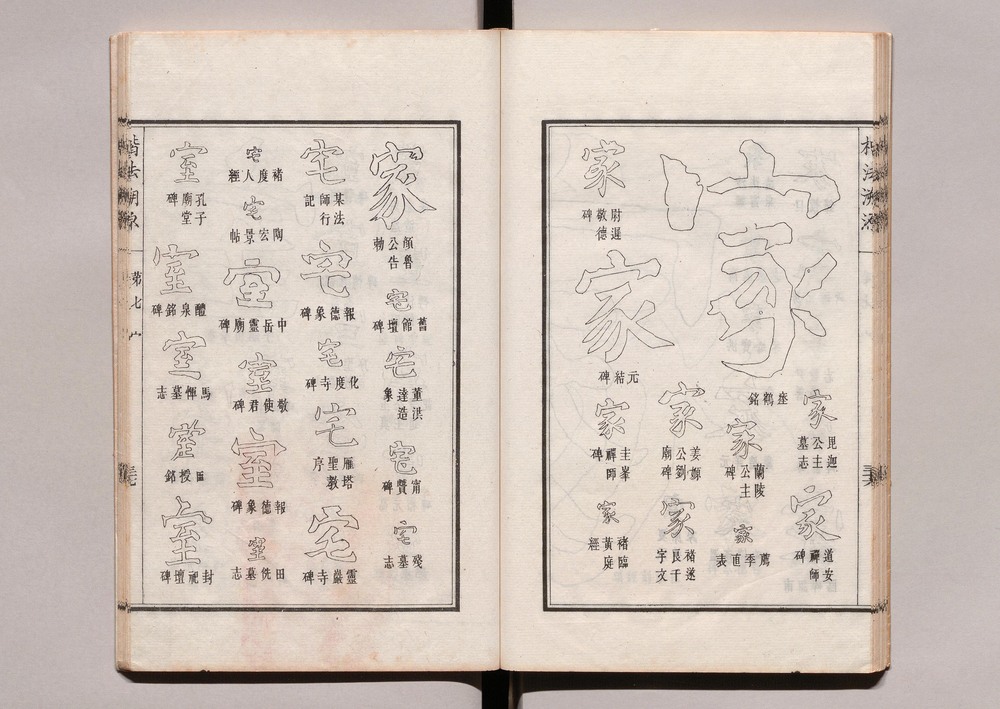 楷法溯源
家
座鶴銘
家
毘迦公主墓志
家
道安禪師碑
家
蘭陵公主碑
家
薦季直表
家
尉遲敬德碑
家
元結碑
家
姜嫄公劉廟碑
家
褚遂良千字文
家
圭峯禪師碑
家
褚臨黃庭經
家
顏魯公告勑
宅
舊館壇碑
宅
董洪達造象
宅
甯贙碑
宅
殘墓志
宅
某法師行記
宅
報德象碑
宅
化度寺碑
宅
雁塔聖教序
宅
靈巖寺碑
宅
褚度人經
宅
陶宏景帖
室
中岳靈廟碑
室
敬使君碑
室
報德象碑
室
田侁墓志
室
孔子廟堂碑
室
醴泉銘碑
室
馬惲墓志
室
授銘
室
封祀壇碑
楷法溯源
第七
宀